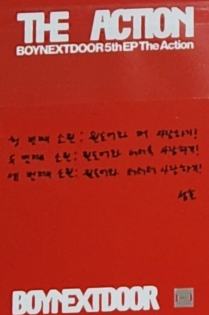 THE ACTION
BOYNEXTDOOR 5th EP The Action
첫 번째 소원: 원도어와 더 사랑하기!
두 번째 소원: 원도어와 더더욱 사랑하기!
세 번째 소원: 원도어와 더더더 사랑하기!
성호
BOYNEXTDOOR